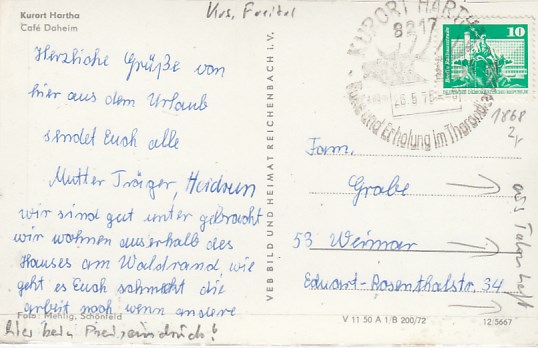 Krs. Freital
Kurort Hartha
Café Daheim
Herzliche Grüße von
hier aus dem Urlaub
sendet Euch alle
Mutter Träger, Heidrun
wir sind gut unter gebracht
wir wohnen ausserhalb des
Hauses am Waldrand, wie
geht es Euch schmeckt die
arbeit noch wenn andere
hier beim
Foto: Mehlig, Schönfeld
VEB BILD UND HEIMAT REICHENBACH I. V.
KURORT HARTHA
8217
und Erholung im Tharandter
10
1868
Fam.
Grabe
53 Weimar
Eduart-Rosenthalstr. 34
V 11 50 A 1/B 200/72
12 5667